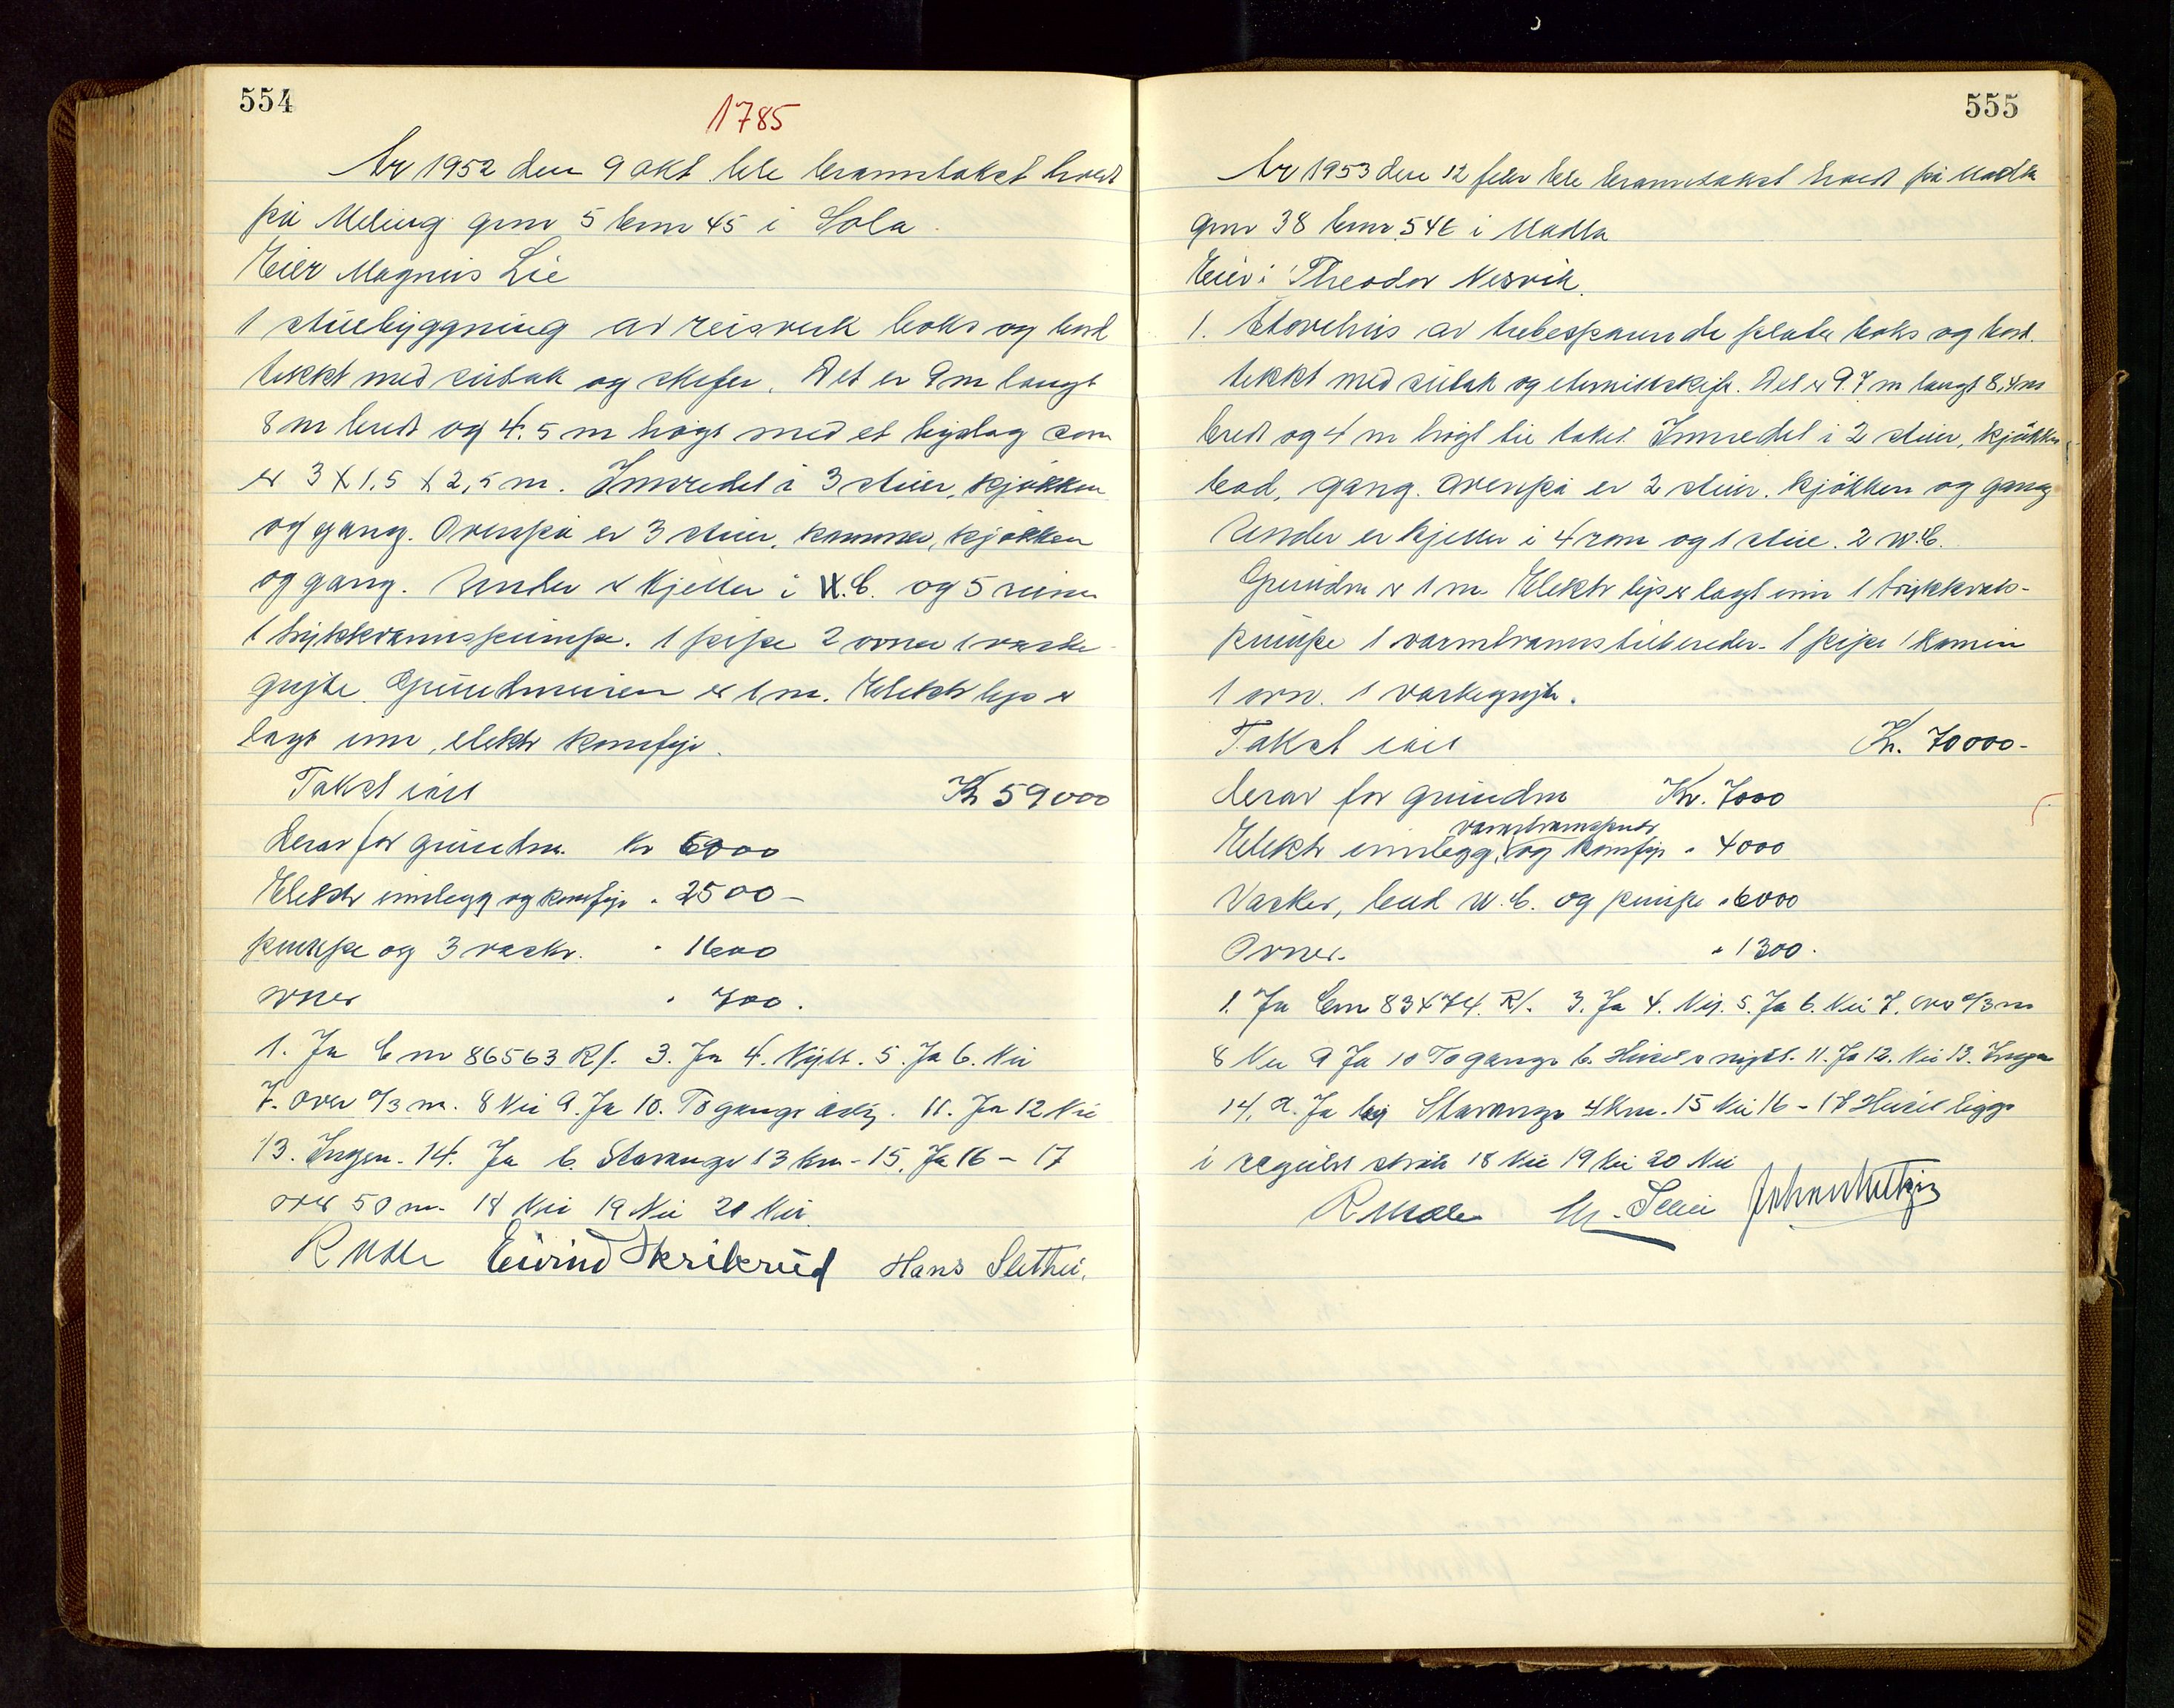 554
1785
År 1952 den 9 okt ble branntakst holdt
på Meling gnr 5 bnr 45 i Sola.
Eier Magnus Lie
1 stuebyggning av reisverk boks og bord
tekkt med sutak og skifer. Det er 9 m langt
8 m bredt og 4.5 m høgt med et bijslag som
er 3 X 1.5 X 2,5 m. Innredet i 3 stuer, kjøkken
og gang. Ovenpå er 3 stuer, kammer, kjøkken
og gang. Under er kjeller i W.C. og 5 rum
1 trykkvannspumpe. 1 pipe 2 ovner 1 vaske
gryte. Grundmuren er 1 m. Elektr lys er
lagt inn, elektr komfyr.
Takst inil Kr 59000
Herav for grundm. Kr 6000
Elektr innlegg og komfyr " 2500-
pumpe og 3 vasker. " 1600
ovner " 700.
1. Ja bnr 86563 R/. 3. Ja 4. Nytt. 5. Ja 6. Nei
7. Over 0/3 m. 8 Nei 9. Ja 10. To gange årlig. 11. Ja 12 Nei
13. Ingen. 14. Ja b. Stavanger 13 km - 15. Ja 16 - 17
over 50 m. 18 Nei 19 Nei 20 Nei.
R Malle Eivind Skribrud Hans Slethei.
555
År 1953 den 12 febr ble branntakst holdt på Madla
gnr 38 bnr 542 i Madla
Eier: Theodor Nesvik.
1. Stovehus av trebespaende plater boks og bord.
tekkt med sutak og eternitskifer. Det er 9.7 m langt 8,4 m
bredt og 4 m høgt til taket. Innredet i 2 stuer, kjøkken
bad, gang. Ovenpå er 2 stuer. kjøkken og gang
Under er kjeller i 4 rom og 1 stue. 2 W.C.
Grundm er 1 m Elektr lys er lagt inn 1 trykkvats-
pumpe 1 varmtvannstilbereder. 1 pipe 1 Kamin
1 ovn. 1 vaskegryte.
Takst inil Kr. 70000-
herav for grundm Kr. 7000
varmtvannsber
Elektr innlegg, og komfyr " 4000
Vasker, bad W.C. og pumpe " 6000
Ovner. " 1300.
1. Ja bnr 83474. R/. 3. Ja 4. Ny. 5. Ja 6. Nei 7. over 0/3 m
8 Nei 9 Ja 10 To gange b. Huset er nytt. 11. Ja 12. Nei 13. Ingen
14. a. Ja by Stavanger 4 km. 15 Nei 16 - 17 Huset ligger
i regulert strøk 18 Nei 19 Nei 20 Nei
R Malle